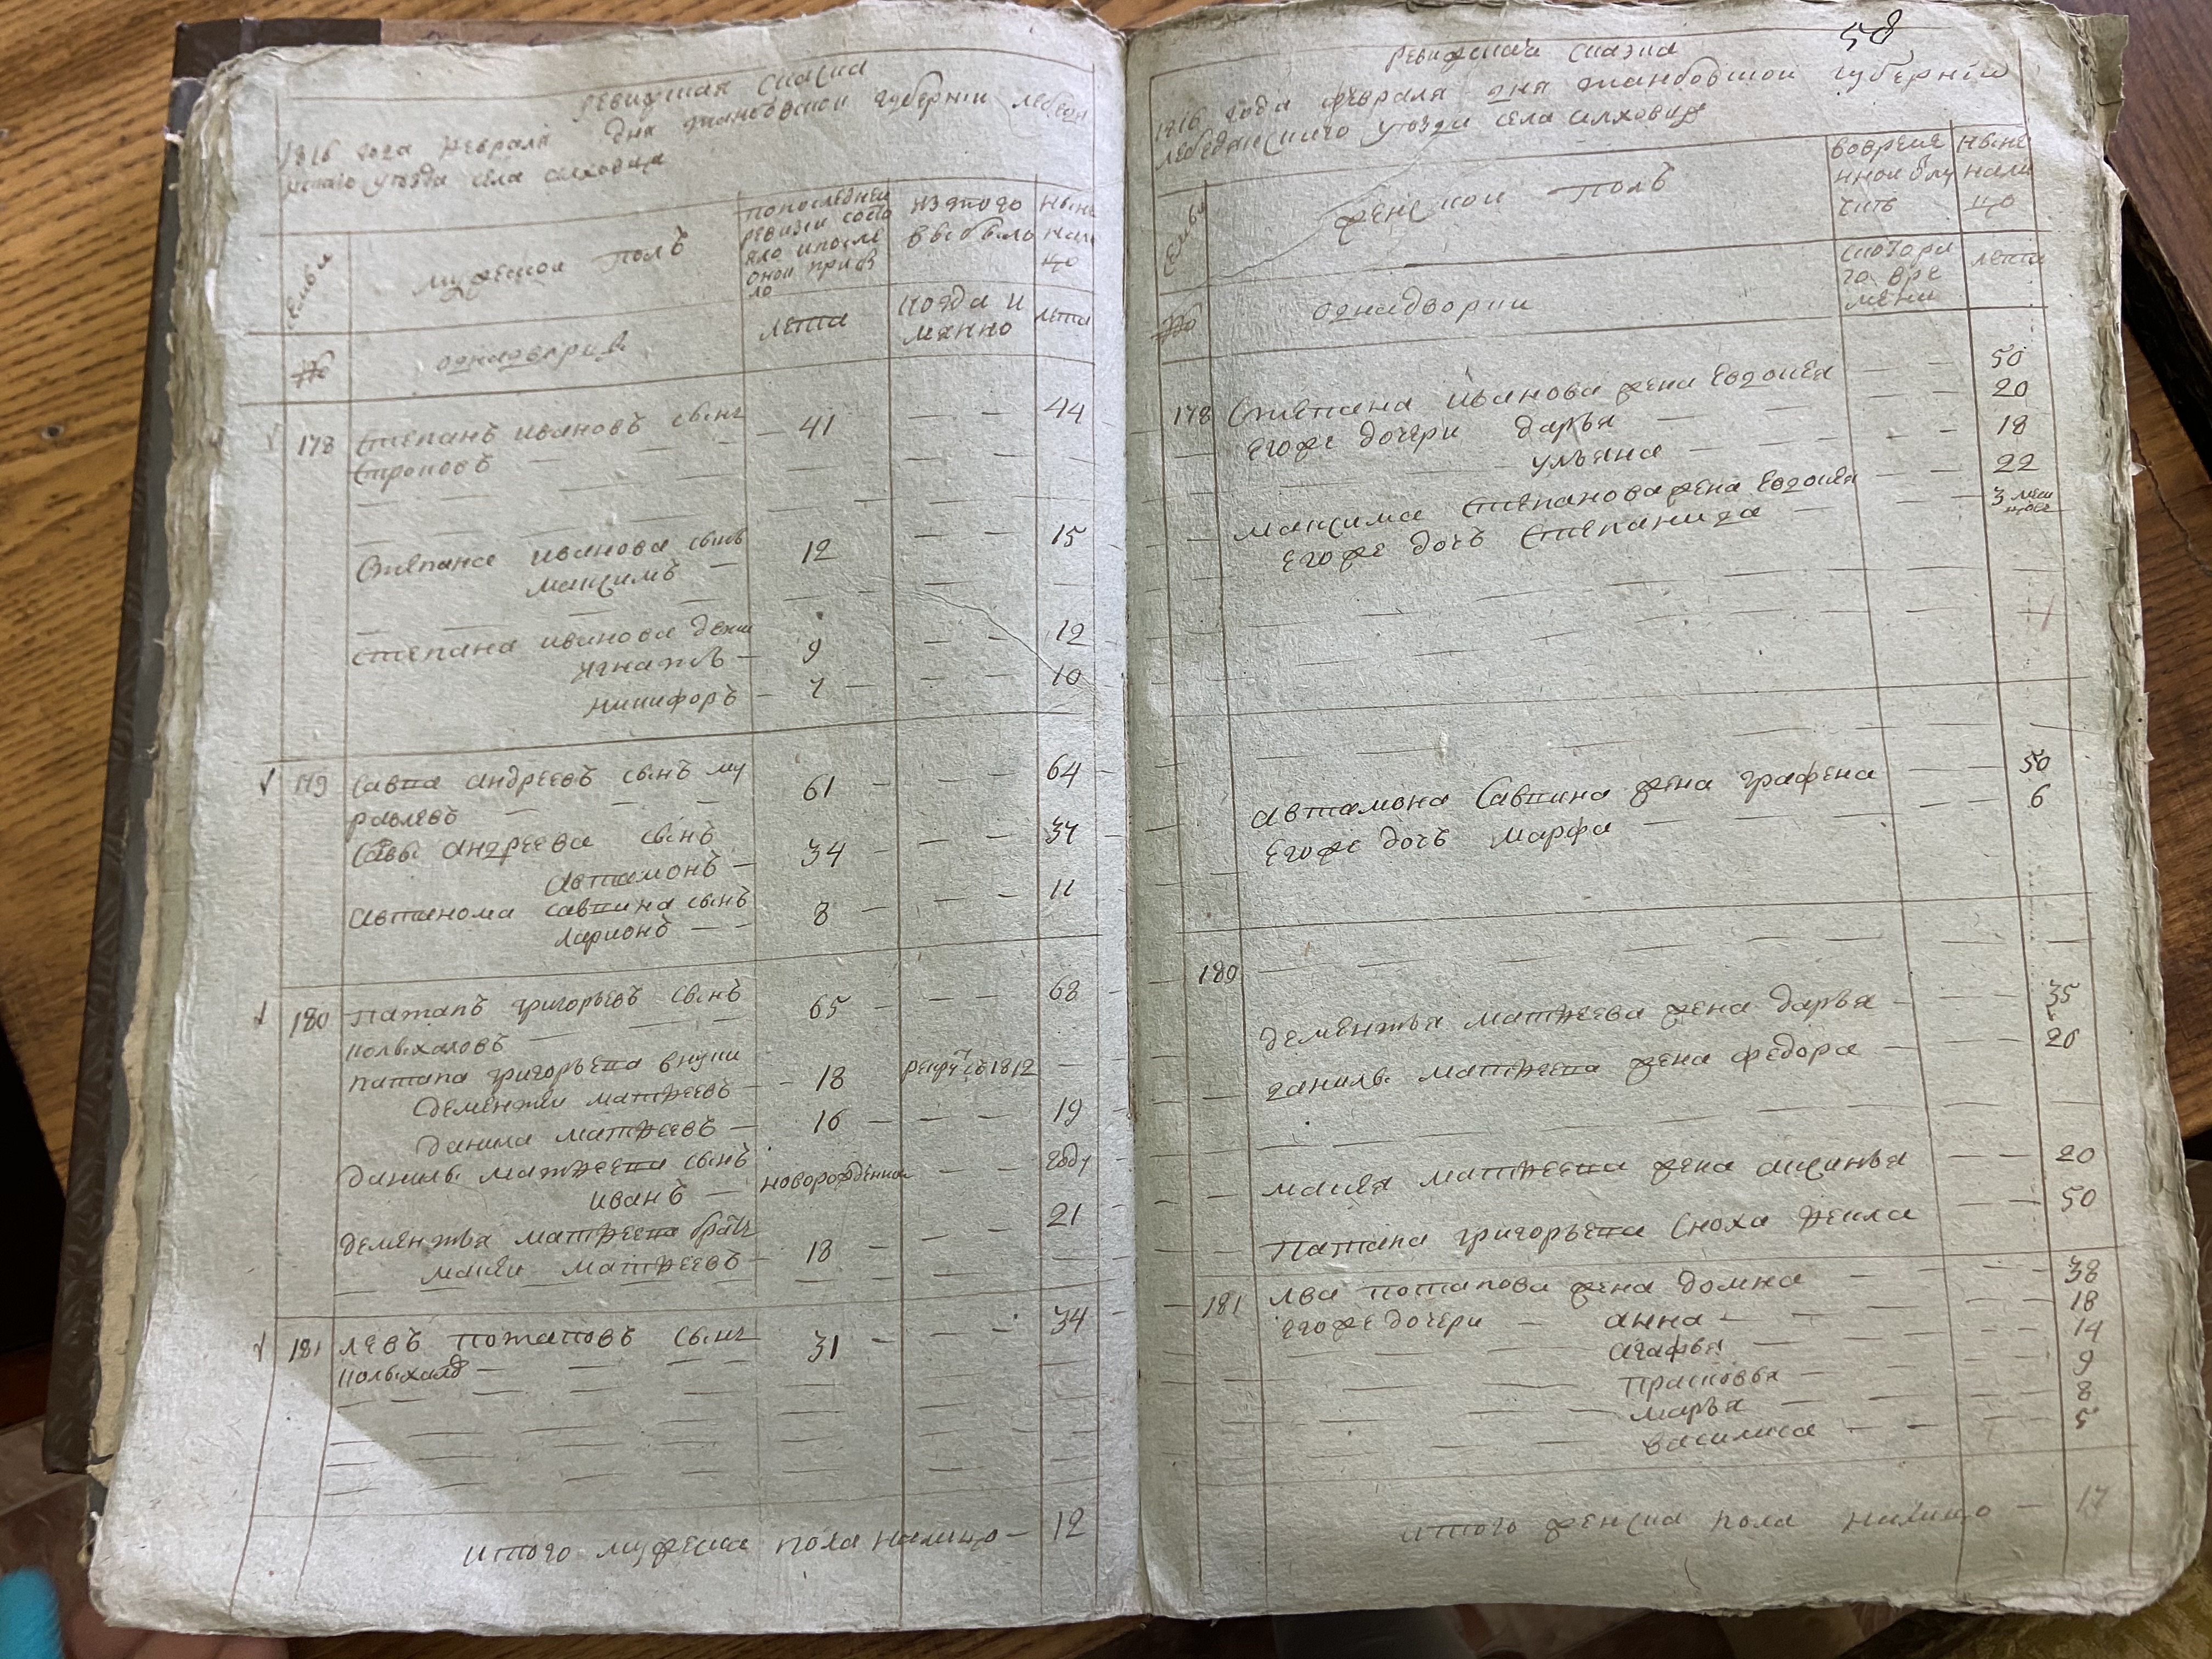 ревизская сказка
1816 года февраля дня танбовской губернии лебедян
ского уезда села салховца
семьи
мужеской полъ
попоследней
ревизии состо
яло ипосле
оной прибы
ло
изтого
выбыло
ныне
нали
цо
№
однодворцы
лета
когда и
мянно
лета
178 Степанъ ивановъ сынъ 41 44
Строковъ
Степана иванова сынъ 12 15
максимъ
степана иванова дети
игнатъ 9 12
никифоръ 7 10
179 Савва андреевъ сынъ му 61 64
равлевъ
Савы андреева сынъ
автамонъ 34 37
автанома савина сынъ
ларионъ 8 11
180 патапъ григорьевъ сынъ 65 68
полыхаловъ
патапа григорьева внуки
дементеи матвеевъ 18 рекрутъ 1812
данила матвеевъ 16 19
данилы матвеева сынъ
иванъ новорожденнаи году
дементья матвеева братъ
макеи матвеевъ 18 21
181 левъ потаповъ сынъ 31 34
полыхалов
итого мужеска пола налицо 12
58
ревизская сказка
1816 года февраля дня танбовской губернии
лебедянского уезда села салховца
семьи
женской полъ
вовреме
нной отлу
чке
ныне
нали
цо
№
однадворки
скотора
го вре
мени
лета
178 Степана иванова жена евдокея 50
егоже дочери дарья 20
ульяна 18
максима степанова жена евдокея 22
егоже дочь степанида 3 меся
цов
автамона савина жена графена 50
егоже дочь марфа 6
180
дементья матвеева жена дарья 35
данилы матвеева жена федора 20
макея матвеева жена аксинья 20
патапа григорьева сноха фекла 50
181 лва потапова жена домна 38
егоже дочери анна 18
агафья 14
прасковья 9
марья 8
василиса 5
итого женска пола налицо 17